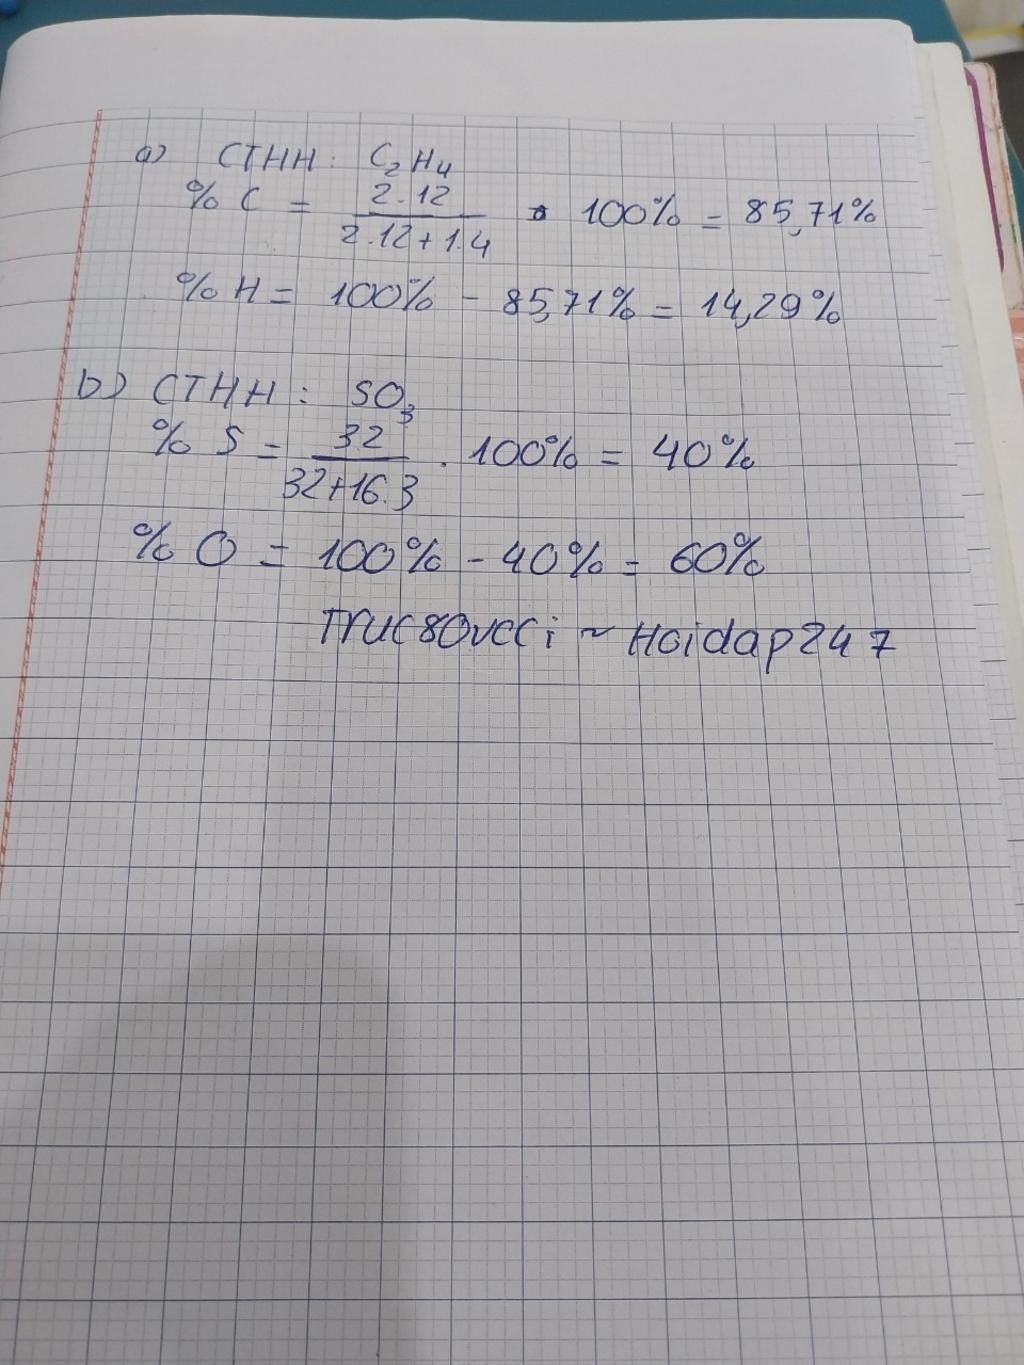 a) CTHH: C₂H₄
% C = 2.12 / 2.12+1.4 . 100% = 85,71%
% H = 100% - 85,71% = 14,29%
b) CTHH: SO₃
% S = 32 / 32+16.3 . 100% = 40%
% O = 100% - 40% = 60%
Truc8Ovcci ~ Hoidap247